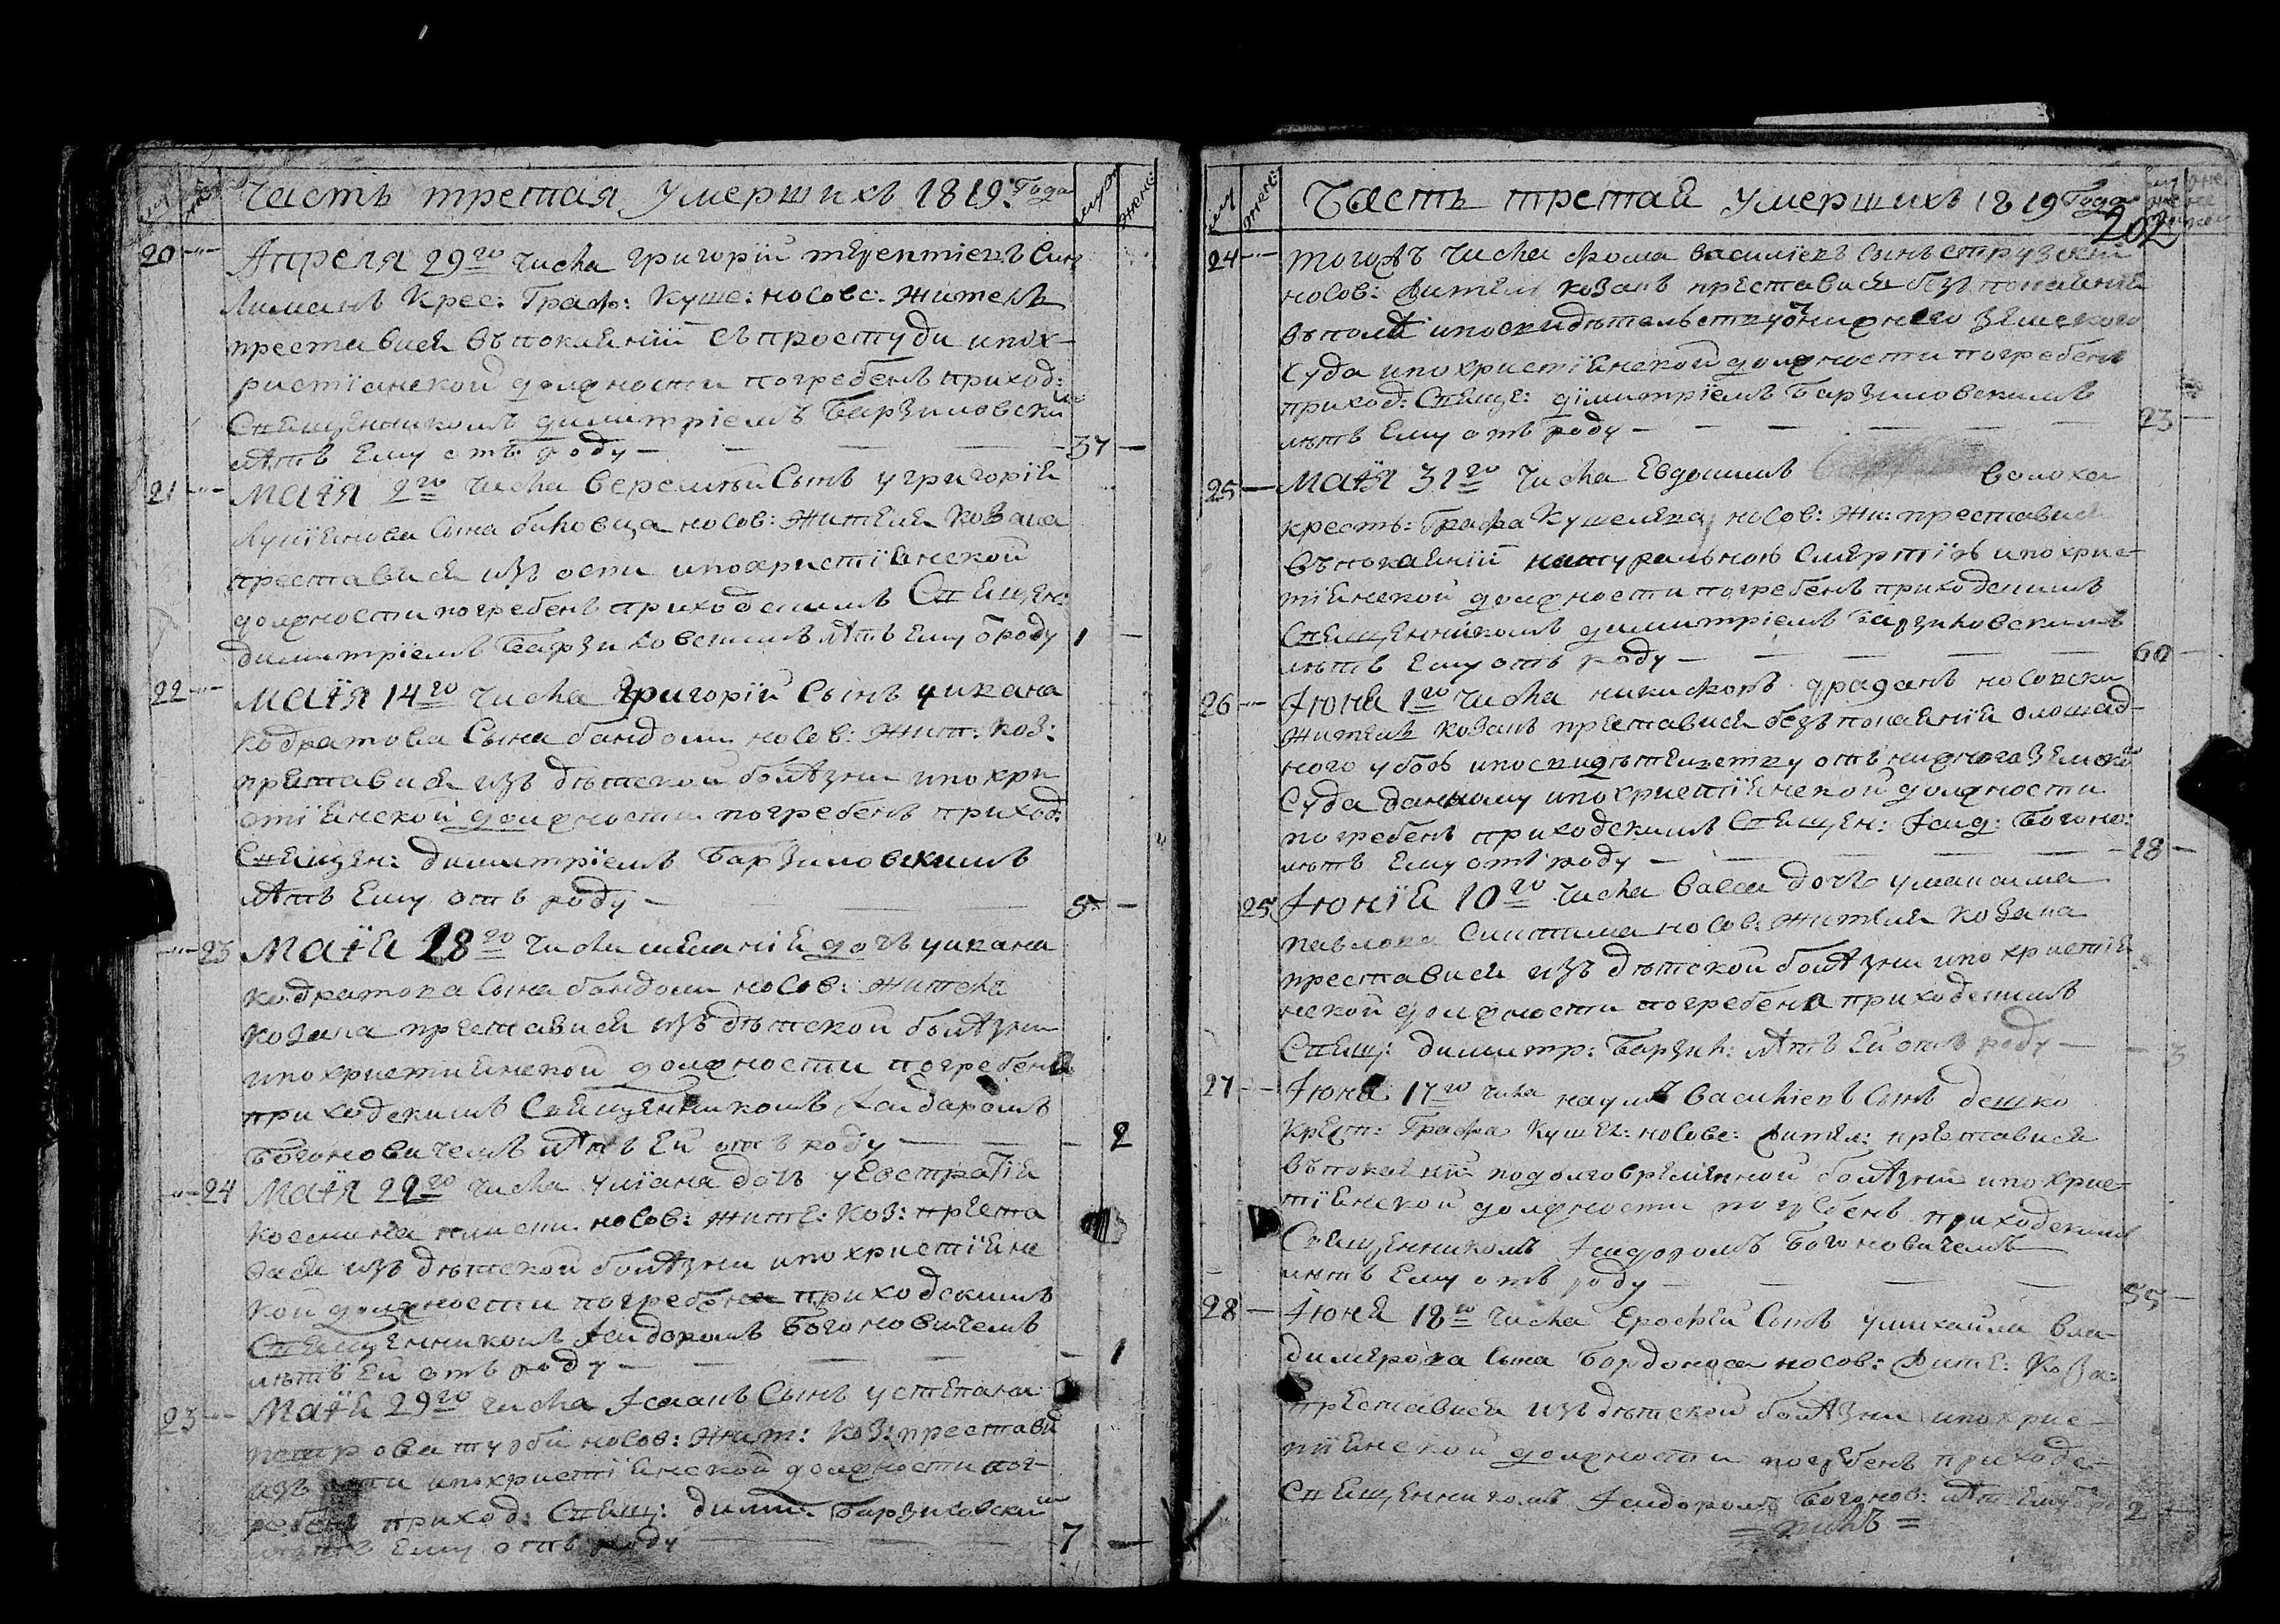 Часть третая умершихъ 1819: Года
20
Апреля 29го числа григорій Сынъ
Лиманъ Крес: Граф: Куше: носовс: Житель
преставися въ покаяніи съ простуди и по х-
ристіанской должности погребенъ приход:
Священникомъ димитріемъ Барзиловским
лѣтъ Ему отъ роду — 37 —
21
Маія 2го числа Сынъ у григорія
сына носов: Жителя Козака
преставися изъ оспи и по христіянской
должности погребенъ приходскимъ Священ:
димитріемъ Барзиловскимъ лѣтъ Ему о роду 1 —
22
Маія 14го числа Григорій Сынъ у ивана
кодратова Сына бандоли носов: Жит: Коз:
преставися изъ дѣтской болѣзни и по хри
стіянской должности погребенъ приход:
Священ: димитріемъ Барзиловскимъ
лѣтъ Ему отъ роду — 5 —
23
Маія 18го числа меланія дочъ у ивана
кодратова Сына бандоли носов: Жителя
козака преставися изъ дѣтской болѣзни
и по християнской должности погребена
приходскимъ Священникомъ
Богоновичемъ лѣтъ Ей отъ роду — 2
24
Маія 22го числа уліана дочъ у Евстратія
носов: жите: Коз: преста
вися изъ дѣтской болѣзни и по христіянс
кой должности погребена приходскимъ
Священникомъ Ісидоромъ Богоновичемъ
лѣтъ Ей отъ роду — 1
23
Маія 29го числа Сынъ у степана
петрова турби носов: Жит: Коз: престави
изъ оспи и по христіянской должности пог-
ребенъ приход: Свящ: дими: Барзиловским
лѣтъ Ему отъ роду — 7 —
Часть третая умершихъ 1819 Года
202
24
тогожъ числа фома василіевъ Сынъ
носов: житель козакъ преставися безъ покаянія
въ поле и по свидѣтельству земского
Суда и по христіянской должности погребенъ
приход: Свяще: димитріемъ Барзиловскимъ
лѣтъ Ему отъ роду — 23 —
25
Маія 31го числа Евдокимъ волоха
крестъ: Графа Кушелева носов: Жи: преставися
въ покаяніи натуральною смертію и по хрис-
тіянской должности погребенъ приходскимъ
Священникомъ димитріемъ Барзиловскимъ
лѣтъ Ему отъ роду — 60 —
26
Іюня 1го числа никифоръ носовски
житель козакъ преставися безъ покаянія
суда данному и по христіянской должности
погребенъ приходскимъ Священ: Ісид: Богоно:
лѣтъ Ему отъ роду — 18 —
25
Іюнія 10го числа васса дочъ у максима
павлова носов: жителя козака
преставися изъ дѣтской болѣзни и по христія
нской должности погребена приходскимъ
Свящ: димитр: Барзил: лѣтъ Ей отъ роду — 3
27
Іюня 17го числа наумъ василіевъ Сынъ дешко
Крест: Графа Кушел: носовс: жител: преставися
въ покаяніи по долговременной болѣзни и по хрис-
тіянской должности погребенъ приходскимъ
Священникомъ Ісидоромъ Богоновичемъ
лѣтъ Ему отъ роду — 55 —
28
Іюня 18го числа Ерофей Сынъ у михаила вла-
димерова Сына Бордоноса носов: жите: Коза:
преставися изъ дѣтской болѣзни и по хрис-
тіянской должности погребенъ приходс-
Священникомъ Ісидоромъ Богонов: лѣт Ему 2 —